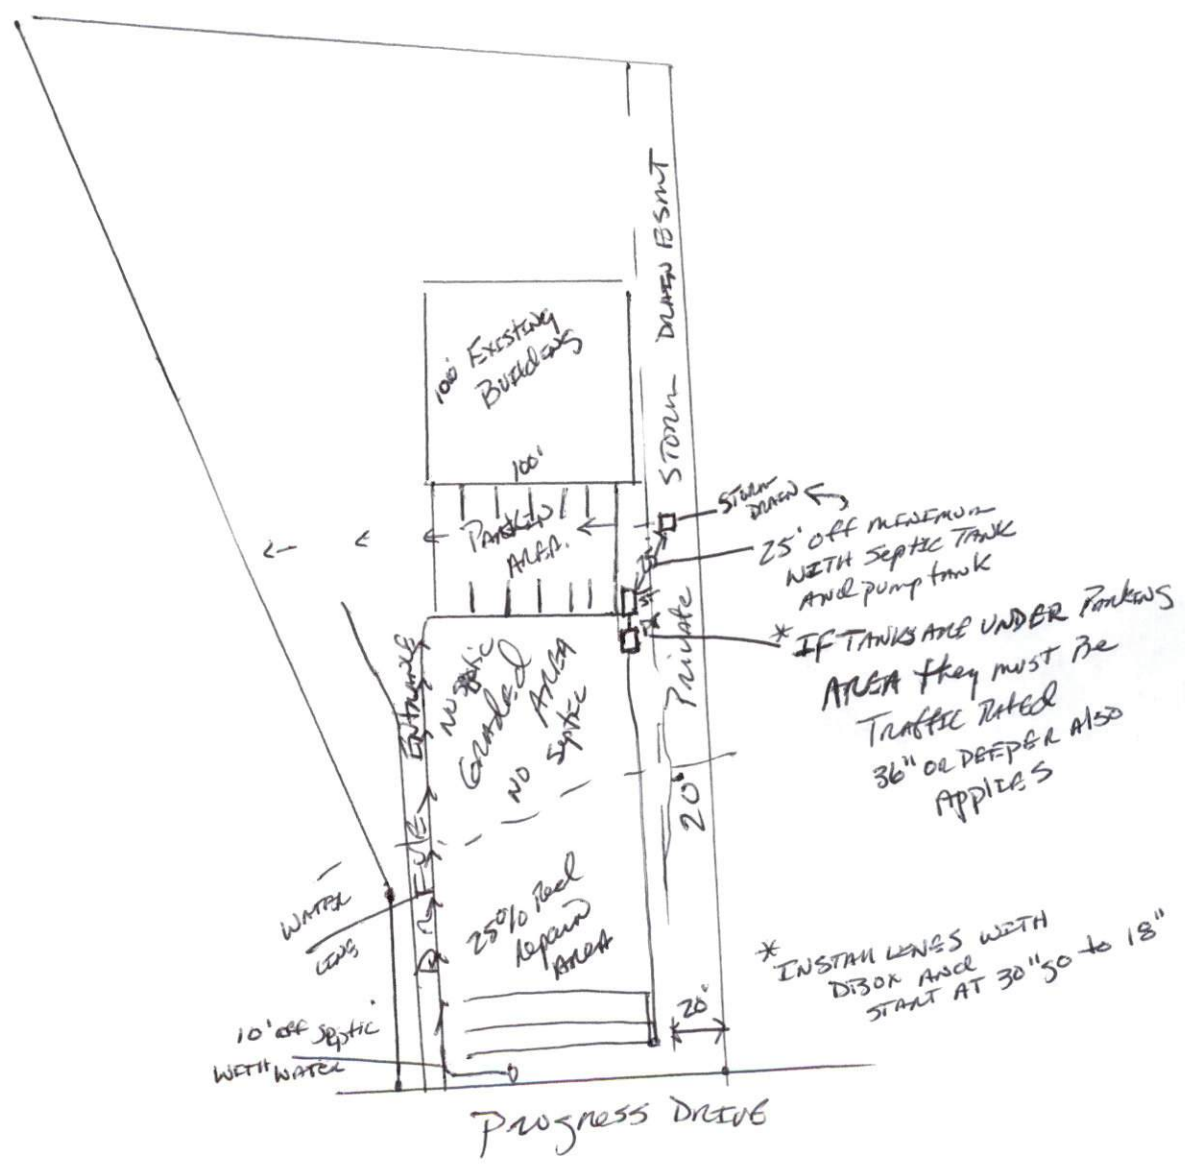 STORM DRAIN ESMT
Existing
100' Building
100'
PARKING
AREA.
STORM
DRAIN
25'
25' off minimum
WITH Septic TANK
And pump tank
ST
PT
* IF TANKS ARE UNDER PARKING
AREA they must Be
TRAFFIC RATED
36" OR DEEPER Also
Applies
Private
20'
ENTRANCE
DRIVE
NO Septic
Graded
AREA
NO Septic
WATER
LINE
25% Red
Repair
AREA
* INSTALL LINES WITH
DBOX AND
START AT 30" go to 18"
20'
10' off Septic
WITH WATER
Progress DRIVE